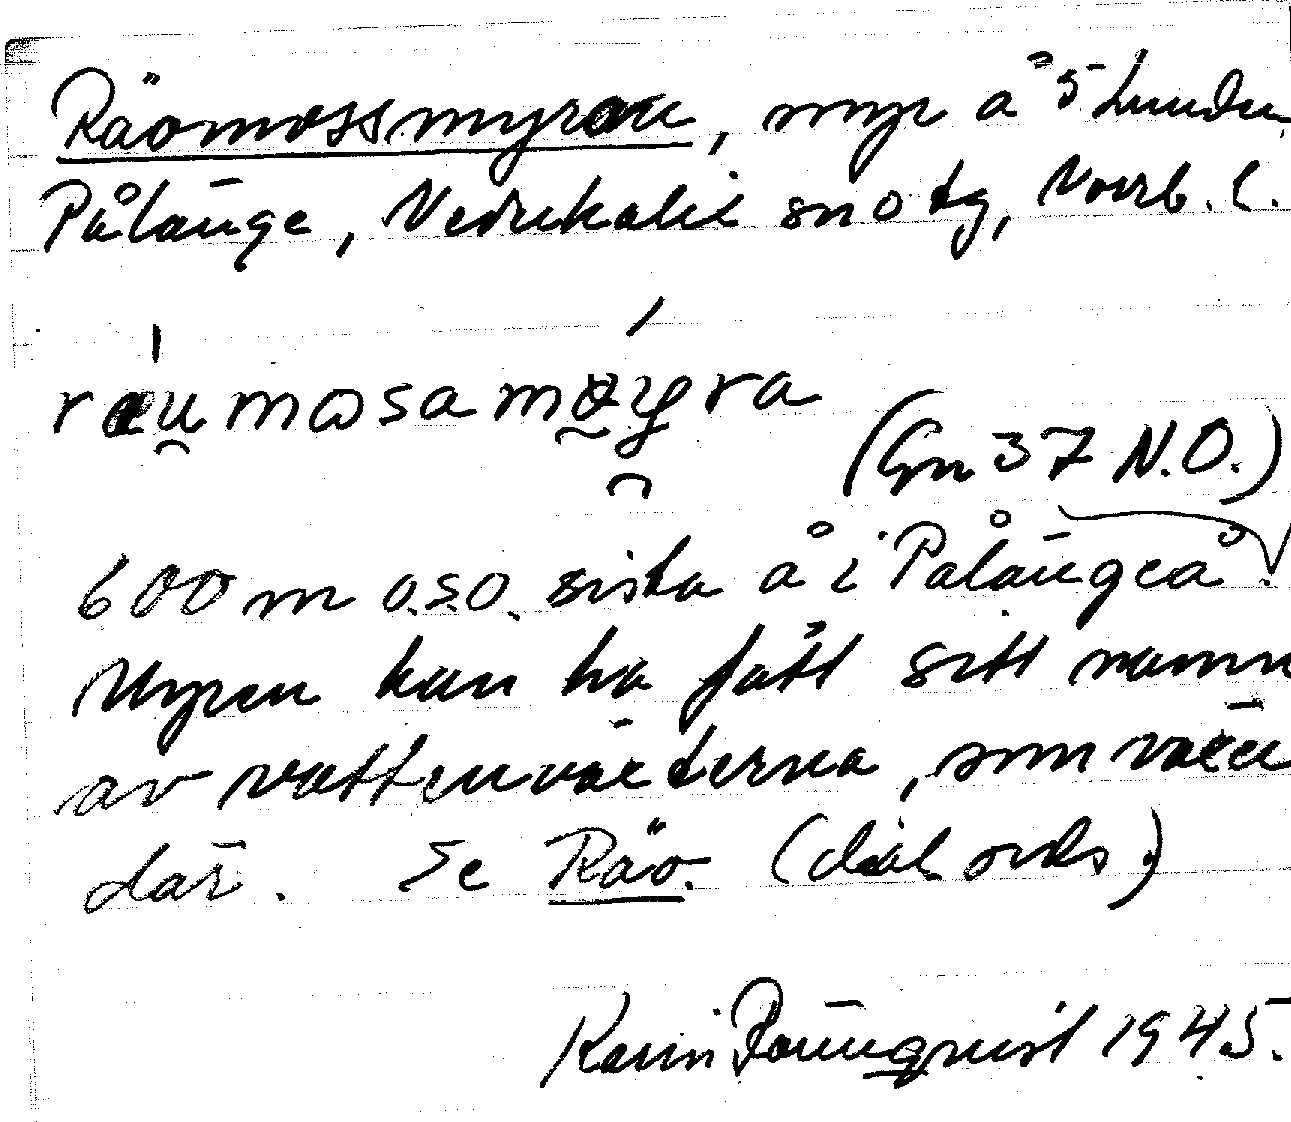 Räomossmyran, myr å 5 hunden
Pålänge, Nederkalix sn o tg, Norrb. l.
ræumosamøyra
(Gn 37 N.O.)
600 m o.s.o. sista å i Pålängeå.
Myren kan ha fått sitt namn
av vattenväterna, som växer
där. Se Räo. (dial ords)
Karin Rönnquist 1945.